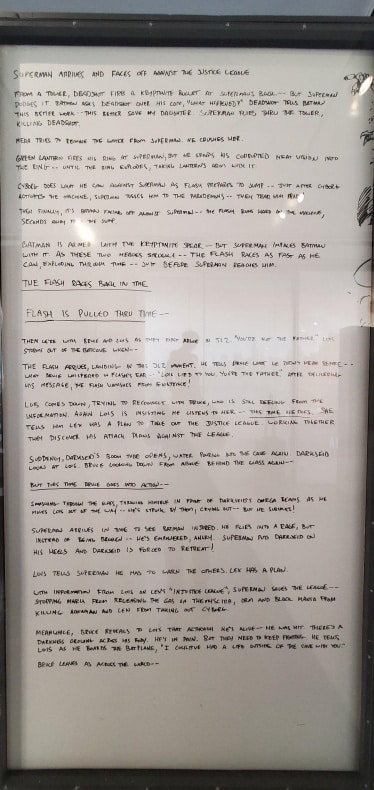 SUPERMAN ARRIVES AND FACES OFF AGAINST THE JUSTICE LEAGUE
FROM A TOWER, DEADSHOT FIRES A KRYPTONITE BULLET AT SUPERMAN'S BACK -- BUT SUPERMAN
DODGES IT. BATMAN ASKS DEADSHOT OVER HIS COM, "WHAT HAPPENED?" DEADSHOT TELLS BATMAN
THIS BETTER WORK -- THIS BETTER SAVE MY DAUGHTER. SUPERMAN FLIES THRU THE TOWER,
KILLING DEADSHOT.
MERA TRIES TO REMOVE THE WATER FROM SUPERMAN. HE CRUSHES HER.
GREEN LANTERN FIRES HIS RING AT SUPERMAN, BUT HE SENDS HIS CORRUPTED HEAT VISION INTO
THE RING -- UNTIL THE RING EXPLODES, TAKING LANTERN'S ARM WITH IT.
CYBORG DOES WHAT HE CAN AGAINST SUPERMAN AS FLASH PREPARES TO JUMP -- JUST AFTER CYBORG
ACTIVATES THE MACHINE, SUPERMAN TOSSES HIM TO THE PARADEMONS -- THEY TEAR HIM APART.
THEN FINALLY, IT'S BATMAN FACING OFF AGAINST SUPERMAN -- THE FLASH RUNS HARD ON THE MACHINE,
SECONDS AWAY FROM THE JUMP.
BATMAN IS ARMED WITH THE KRYPTONITE SPEAR -- BUT SUPERMAN IMPALES BATMAN
WITH IT. AS THESE TWO HEROES STRUGGLE -- THE FLASH RACES AS FAST AS HE
CAN, EXPLODING THROUGH TIME -- JUST BEFORE SUPERMAN REACHES HIM.
THE FLASH RACES BACK IN TIME
FLASH IS PULLED THRU TIME --
THEN WE'RE WITH BRUCE AND LOIS AS THEY FIRST ARGUE IN JL2. "YOU'RE NOT THE FATHER." LOIS
STORMS OUT OF THE BATCAVE WHEN --
THE FLASH ARRIVES, LANDING IN THIS JL2 MOMENT. HE TELLS BRUCE WHAT WE DIDN'T HEAR BEFORE --
WHAT BRUCE WHISPERED IN FLASH'S EAR -- "LOIS LIED TO YOU. YOU'RE THE FATHER." AFTER DELIVERING
HIS MESSAGE, THE FLASH VANISHES FROM EXISTENCE!
LOIS COMES DOWN, TRYING TO RECONNECT WITH BRUCE, WHO IS STILL REELING FROM THE
INFORMATION. AGAIN LOIS IS INSISTING HE LISTENS TO HER -- THIS TIME HE DOES. SHE
TELLS HIM LEX HAS A PLAN TO TAKE OUT THE JUSTICE LEAGUE. WORKING TOGETHER
THEY DISCOVER HIS ATTACK PLANS AGAINST THE LEAGUE.
SUDDENLY, DARKSEID'S BOOM TUBE OPENS, WATER POURING INTO THE CAVE AGAIN. DARKSEID
LOOKS AT LOIS. BRUCE LOOKING DOWN FROM ABOVE BEHIND THE GLASS AGAIN --
BUT THIS TIME BRUCE GOES INTO ACTION --
SMASHING THROUGH THE GLASS, THROWING HIMSELF IN FRONT OF DARKSEID'S OMEGA BEAMS AS HE
MOVES LOIS OUT OF THE WAY -- HE'S STRUCK BY THEM, CRYING OUT -- BUT HE SURVIVES!
SUPERMAN ARRIVES IN TIME TO SEE BATMAN INJURED. HE FLIES INTO A RAGE, BUT
INSTEAD OF BEING BROKEN -- HE'S EMPOWERED, ANGRY. SUPERMAN PUTS DARKSEID ON
HIS HEELS AND DARKSEID IS FORCED TO RETREAT!
LOIS TELLS SUPERMAN HE HAS TO WARN THE OTHERS. LEX HAS A PLAN.
WITH INFORMATION FROM LOIS ON LEX'S "INJUSTICE LEAGUE", SUPERMAN SAVES THE LEAGUE --
STOPPING MARU FROM RELEASING THE GAS IN THEMYSCIRA, ORM AND BLACK MANTA FROM
KILLING AQUAMAN AND LEX FROM TAKING OUT CYBORG.
MEANWHILE, BRUCE REVEALS TO LOIS THAT ALTHOUGH HE'S ALIVE -- HE WAS HIT. THERE'S A
DARKNESS GROWING ACROSS HIS BODY. HE'S IN PAIN. BUT THEY NEED TO KEEP FIGHTING. HE TELLS
LOIS AS HE BOARDS THE BATPLANE, "I COULD'VE HAD A LIFE OUTSIDE OF THE CAVE WITH YOU."
BRUCE LEAVES AS ACROSS THE WORLD --